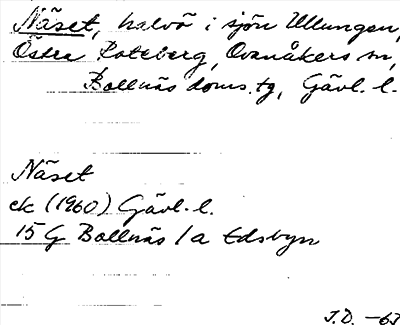 Näset, halvö i sjön Ullungen,
Östra Roteberg, Ovanåkers sn,
Bollnäs doms.tg, Gävl. l.
Näset
ek (1960) Gävl. l.
15 G Bollnäs /a Edsbyn
J.D. -63